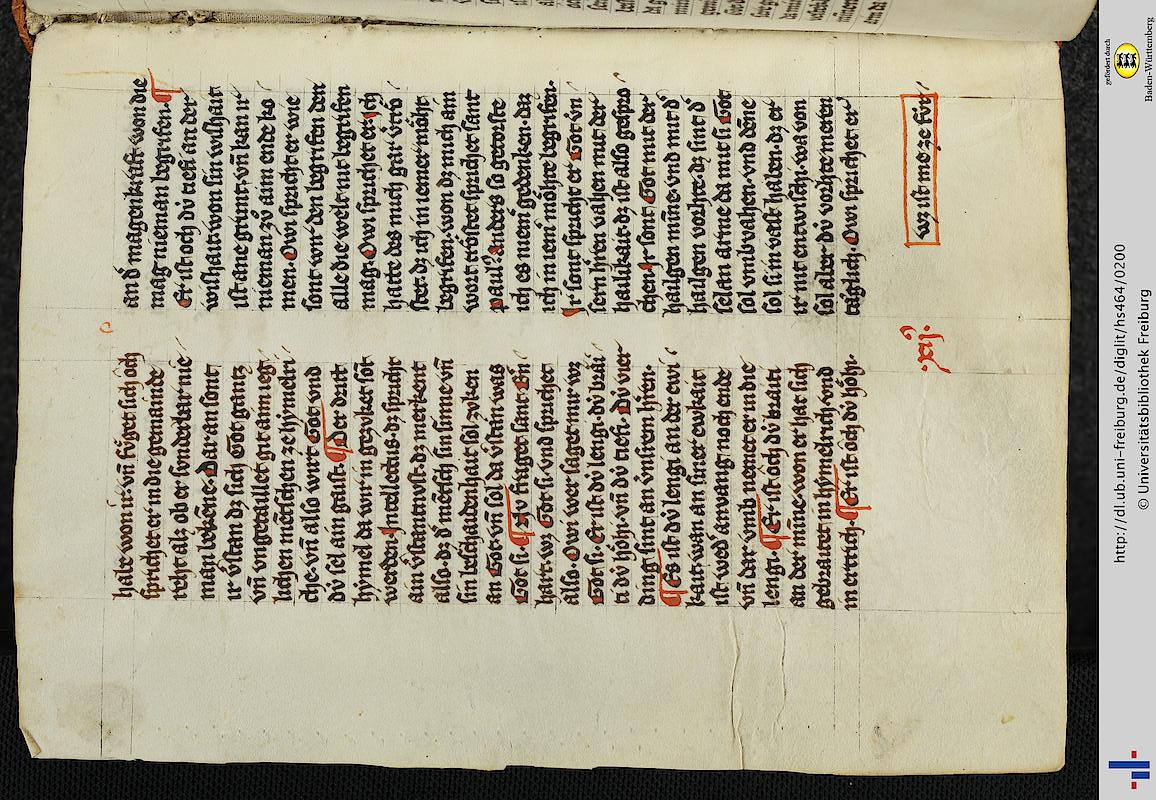 halt won im· vn̄ fv̊get sich och
sprichet er in die gemainde
reht alz ob er sunderbar nie
man bekēne· Dar an sont
ir v̓stan dz sich Got gantz
vn̄ vngetaillet git aim ieg
lichen mēschen ze hymelri
che· vn̄ also wirt Got vnd
dv́ sel ain gaist· ¶ Der dritt
hymel da wir in gezvket sōt
werden Intellectus· dz spricht
ain v̓stantnust· dz merkent
also· dz d̓ mēnsch sin sinne vn̄
sin beschaidenhait sol zvken
an Got vn̄ sol da v̓stan was
Got si· ¶ Nv fraget sant Bn̄
hart· wz Got si· vnd sprichet
also· Owi wer saget mir wz
Got si· Er ist dv́ lengi· dv́ brai
ti dv́ hȯhi· vn̄ dv́ tiefi· Disv́ vier
ding sint an vnsrem hr̄en·
¶ Es ist dv́ lengi an der ewi
kait· wan an siner ewkait
ist wed̓ anvang noch ende
vn̄ dar vmb nemet er in die
lengi· ¶ Er ist ȯch dv́ braiti
an der miñe· won er hat sich
gebraitet in hȳmelrich· vnd
in ertrich· ¶ Er ist och dv́ hȯhi·
an d̓ magenkraft won die
mag nieman begrifen· ¶
Er ist och dv́ tiefi an der
wishait· won sin wishait
ist ane grunt· vn̄ kan ir
nieman zv̊ aim ende ko
men· Owi spricht er wie
sont wir den begrifen den
alle die welt nit begrifen
mag· Owi sprichet er· ich
hatte des mich gar v̓tro
sten dz ich in iemer mȯht
begrifen· won dz mich am
wort trȯstet sprichet sant
paul? anders so getorste
ich es niem̄ gedenken· daz
ich in iem̄ mȯhte begrifen·
Ir sont spricht er Got vn̄
sern hr̄ren vahen mit der
hailikait· dz ist also gespro
chen· Ir sont Got mit der
hailgen miñe· vnd mit d̓
hailgen vorhte· dz sint d̓
selan arme da mit si Got
sol vmb vahen· vnd dēne
sol si in vast halten· dz er
ir nit entwischi· wa von
sol aller· dv́ vorhte meren
tåglich· Owi sprichet er
wz ist me ze fúr
·xij·
gefördert durch
Baden-Württemberg
http://dl.ub.uni-freiburg.de/diglit/hs464/0200
© Universitätsbibliothek Freiburg